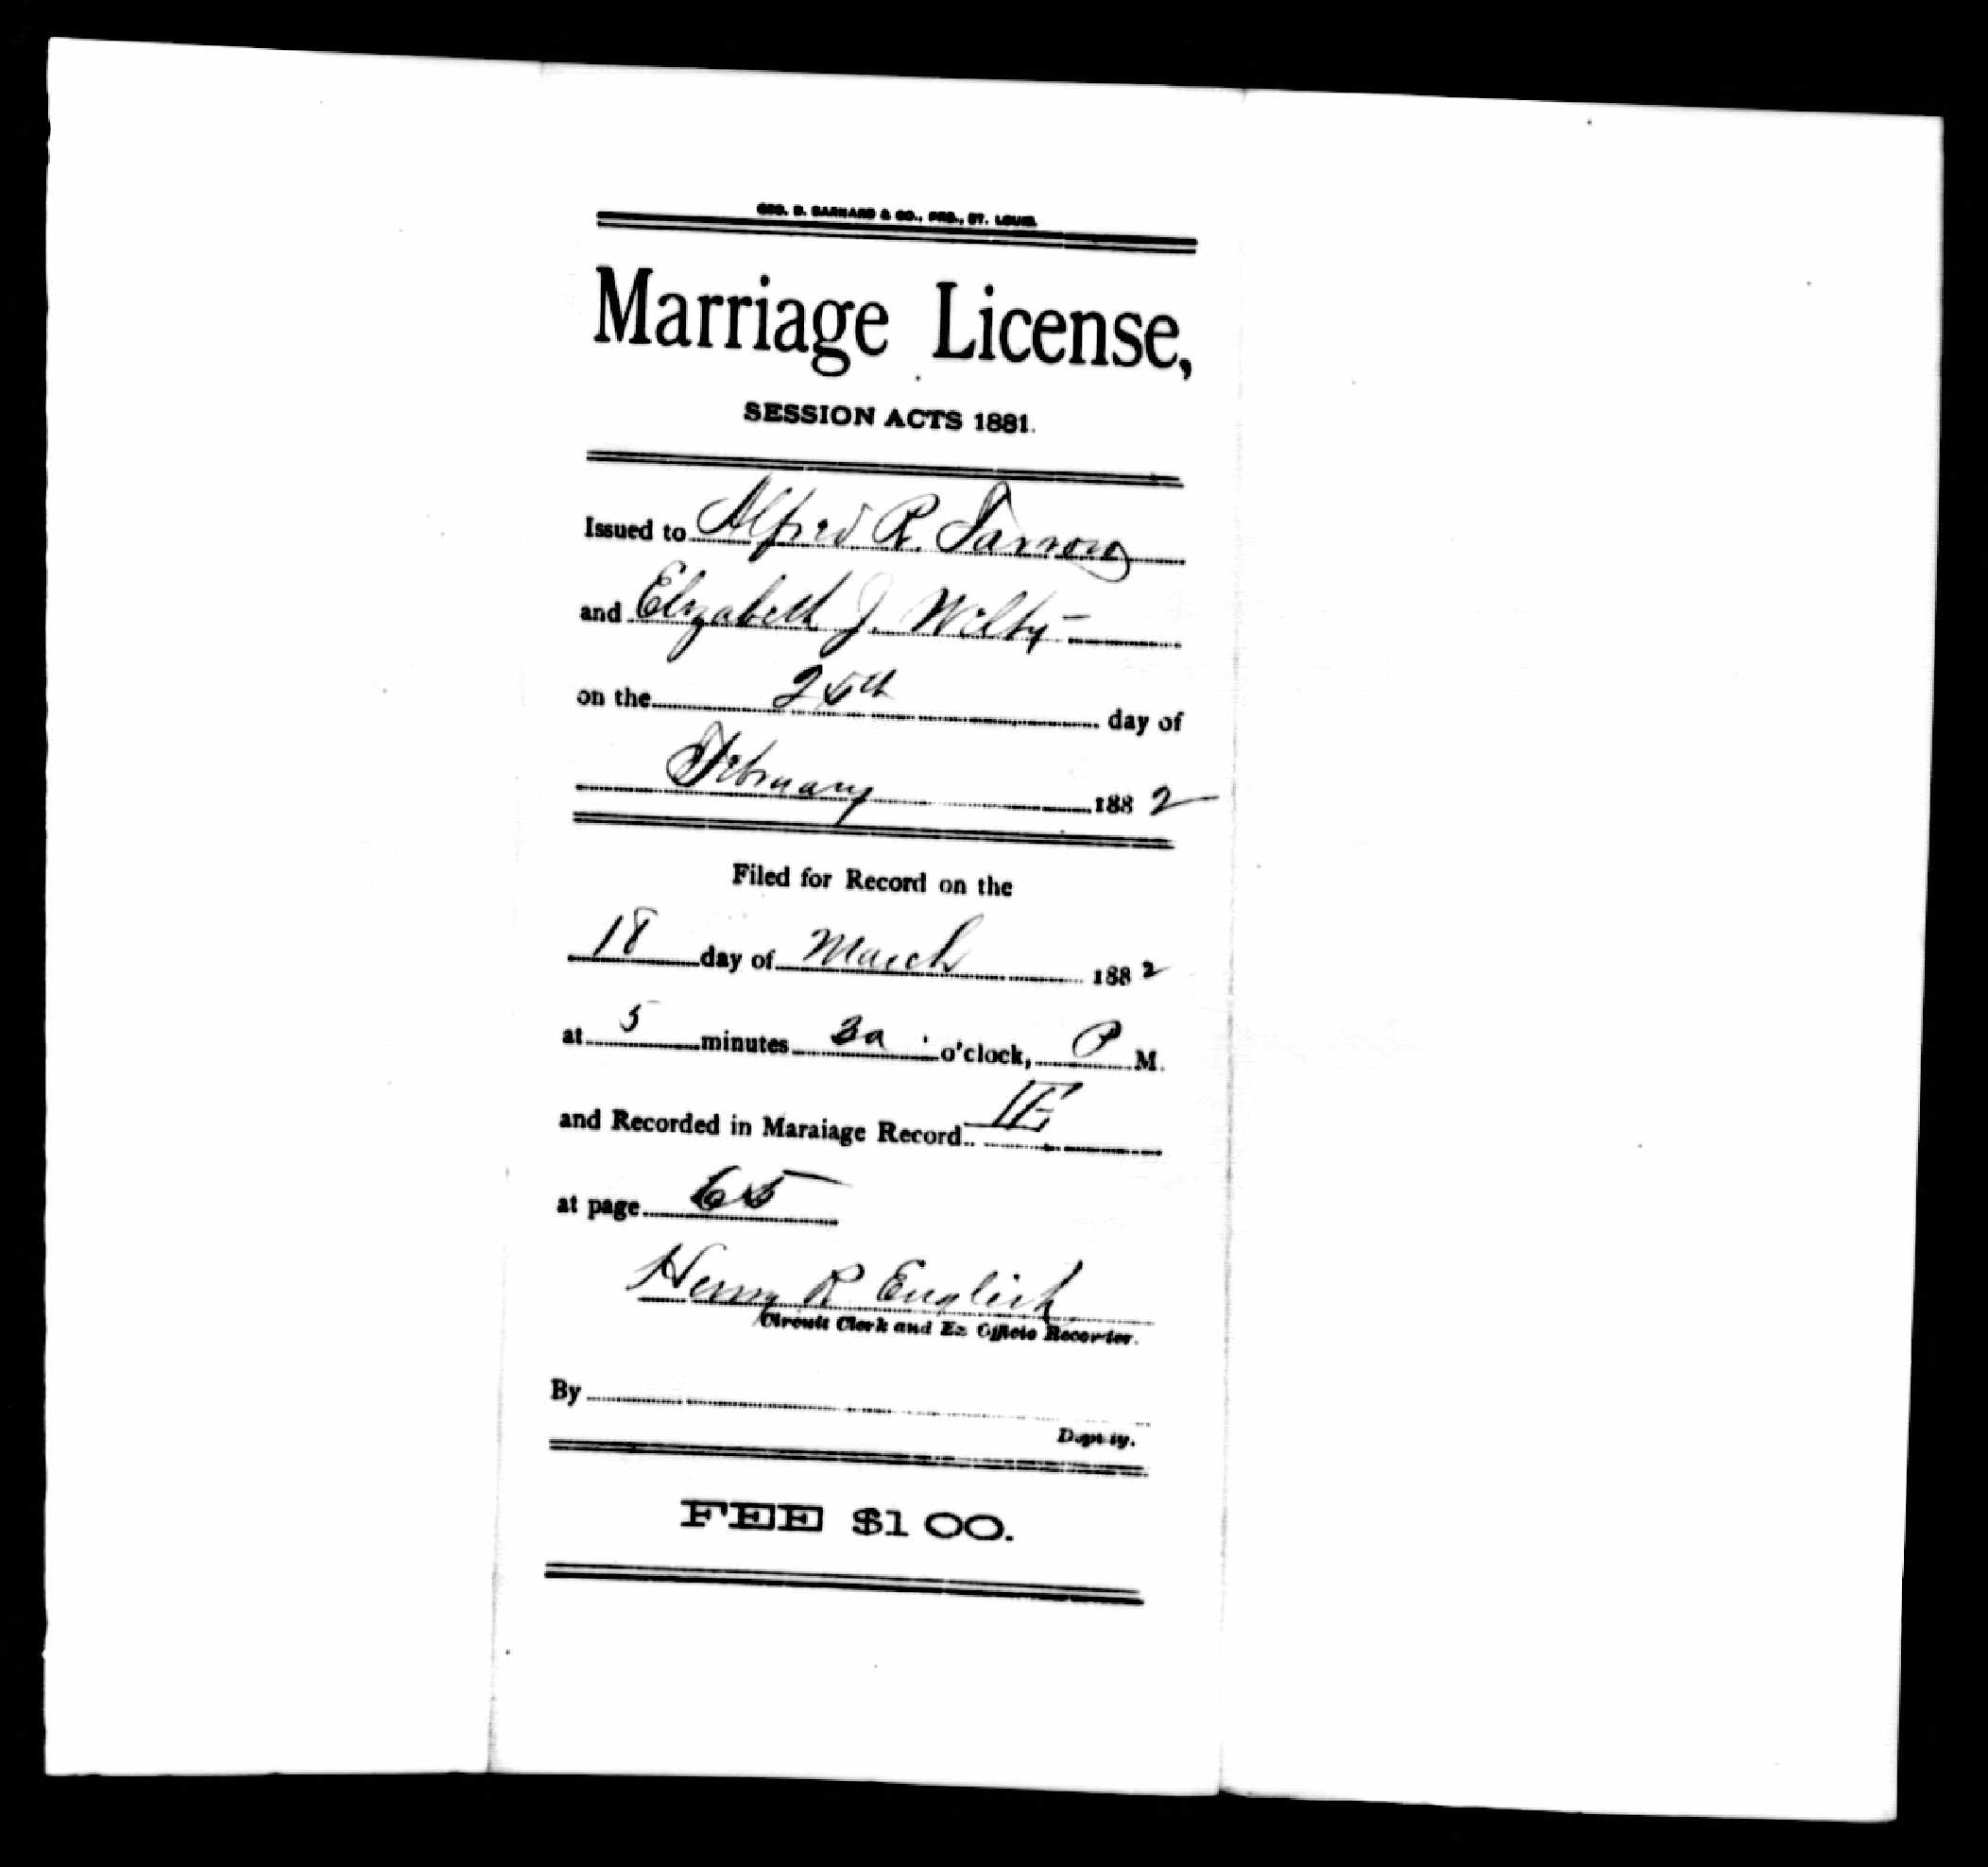 GEO. D. BARNARD & CO., PRS., ST. LOUIS.
Marriage License,
SESSION ACTS 1881.
Issued to Alfred R. Farrow
and Elizabeth J. Wilty
on the 25th day of
February 1882
Filed for Record on the
18 day of March 1882
at 5 minutes o'clock, P M.
and Recorded in Maraiage Record
at page 65
Henry R English
Circuit Clerk and Ex Officio Recorder.
By
Deputy.
FEE $1 00.